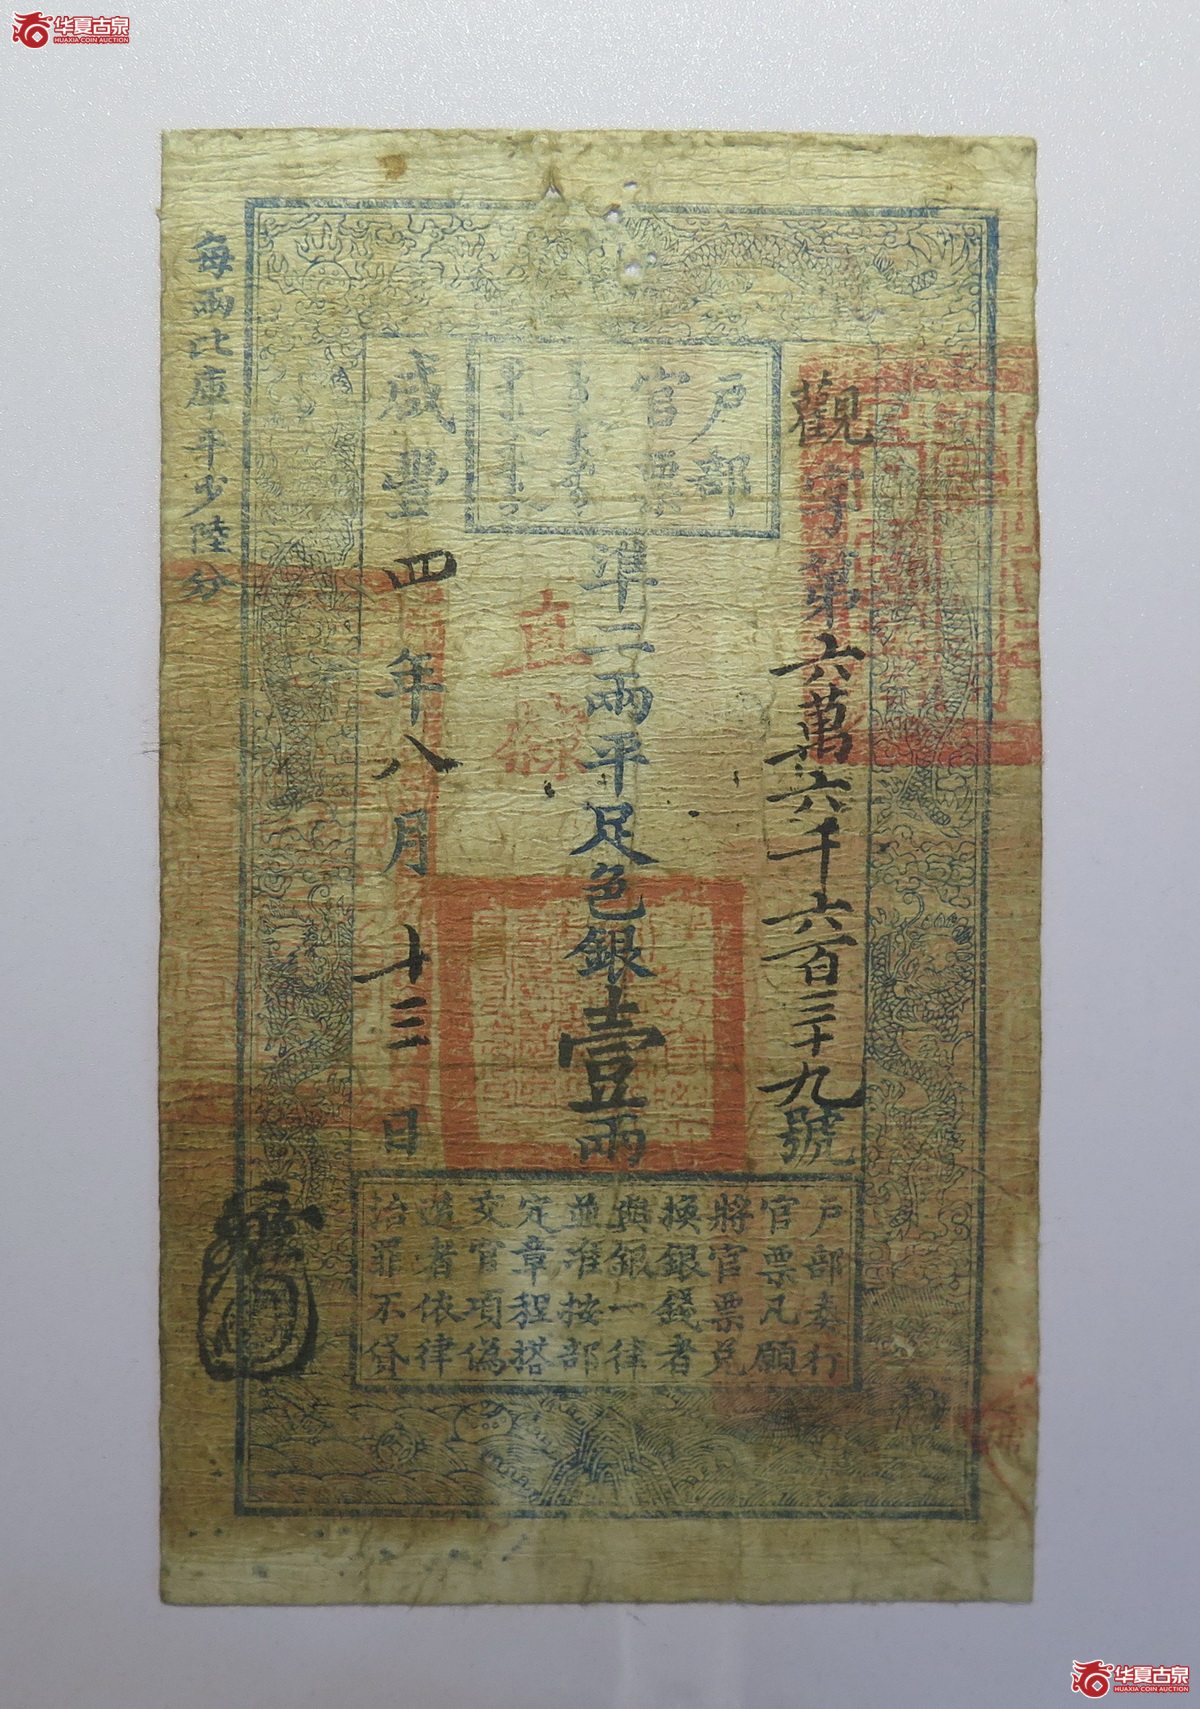 华夏古泉
HUAXIA COIN AUCTION
户部
官票
觀字第六萬六千六百三十九號
準二兩平足色銀壹兩
直隸
咸豐四年八月十三日
每兩比庫平少陸分
户部奏行
官票凡願
將官票兑
換銀錢者
與銀一律
並准按部
定章程搭
交官項偽
造者依律
治罪不貸
华夏古泉
HUAXIA COIN AUCTION